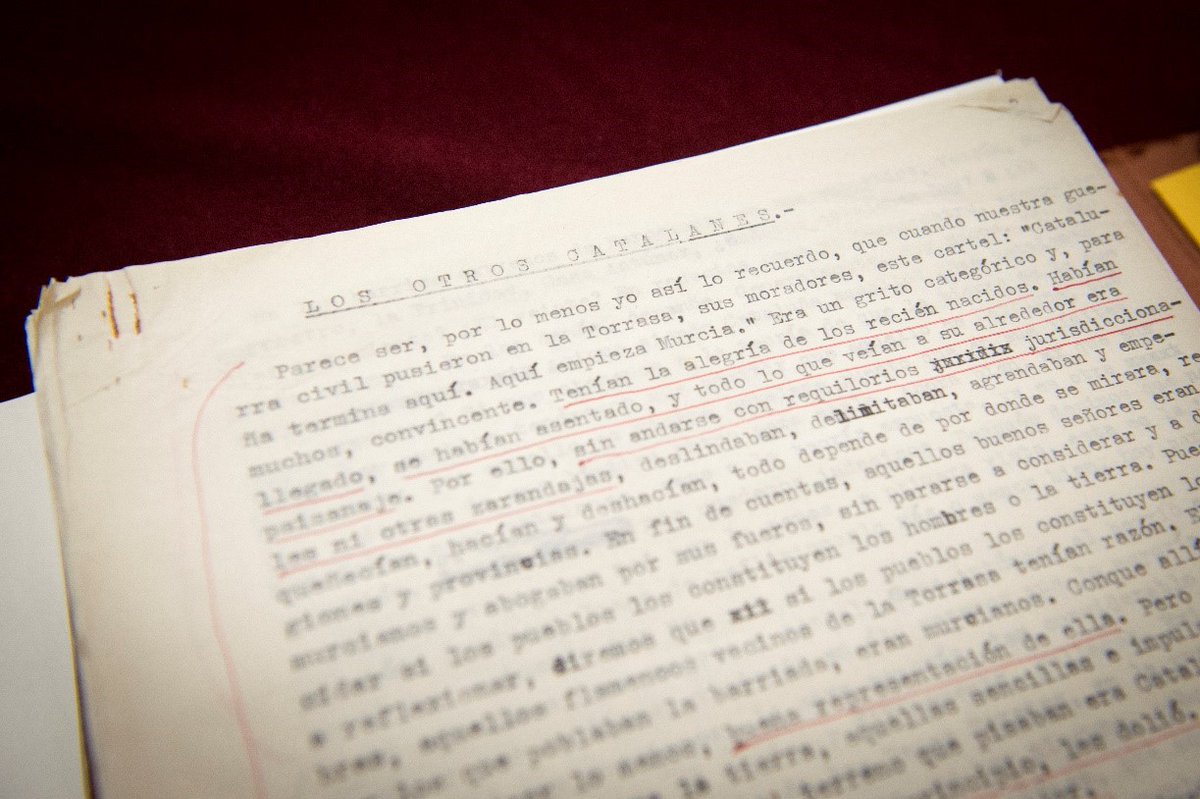 LOS OTROS CATALANES.-
Parece ser, por lo menos yo así lo recuerdo, que cuando nuestra gue-
rra civil pusieron en la Torrasa, sus moradores, este cartel: "Catalu-
ña termina aquí. Aquí empieza Murcia." Era un grito categórico y, para
muchos, convincente. Tenían la alegría de los recién nacidos. Habían
llegado, se habían asentado, y todo lo que veían a su alrededor era
paisanaje. Por ello, sin andarse con requilorios juridix jurisdicciona-
les ni otras zarandajas, deslindaban, delimitaban, agrandaban y empe-
queñecían, hacían y deshacían, todo depende de por donde se mirara, re
giones y provincias. En fin de cuentas, aquellos buenos señores eran
murcianos y abogaban por sus fueros, sin pararse a considerar y a d
sidar si los pueblos los constituyen los hombres o la tierra. Pue
a reflexionar, diremos que xii si los pueblos los constituyen lo
bres, aquellos flamencos vecinos de la Torrasa tenían razón.
los que poblaban la barriada, eran murcianos. Conque allí
por lo menos, buena representación de ella. Pero
la tierra, aquellas sencillas e impul
terreno que pisaban era Catal
principio, les dolió,